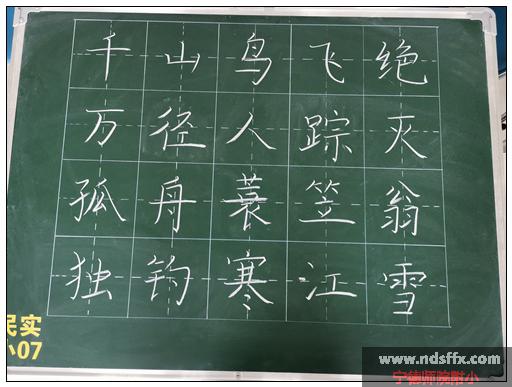 千山鸟飞绝
万径人踪灭
孤舟蓑笠翁
独钓寒江雪
民实
小07
www.ndsffx.com
宁德师院附小